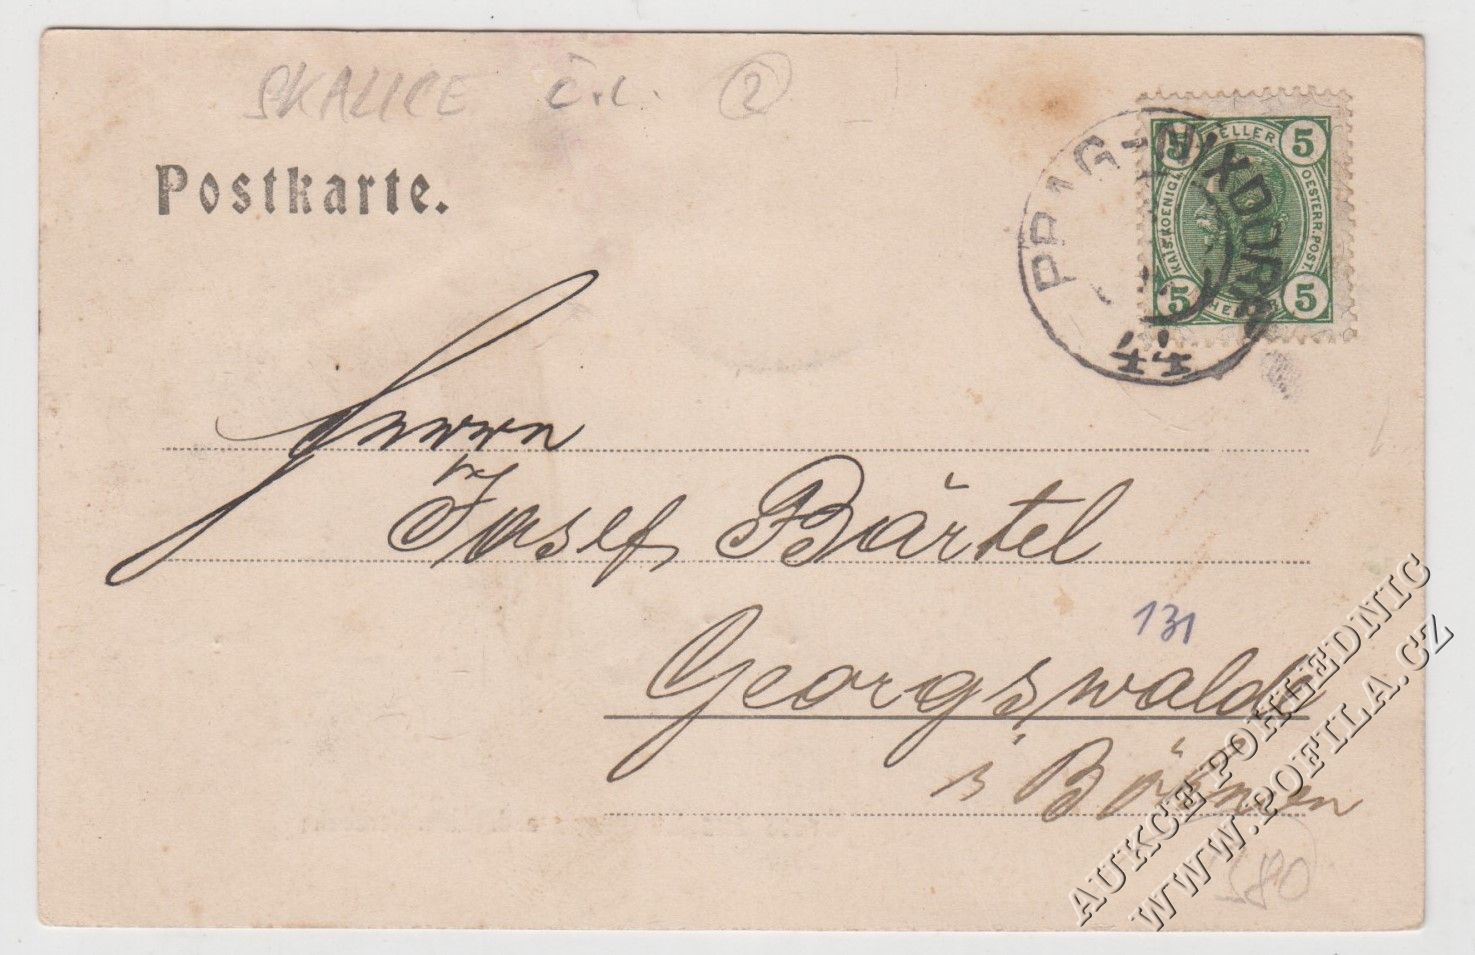 SKALICE Č.L. 2
Postkarte.
PRAG-NIXDORF
44
5 HELLER 5
KAIS. KOENIGL. OESTERR. POST.
5 5
Herrn
Josef Bärtel
131
Georgswalde
i Böhmen
380
AUKCE POHLEDNIC
WWW.POFILA.CZ